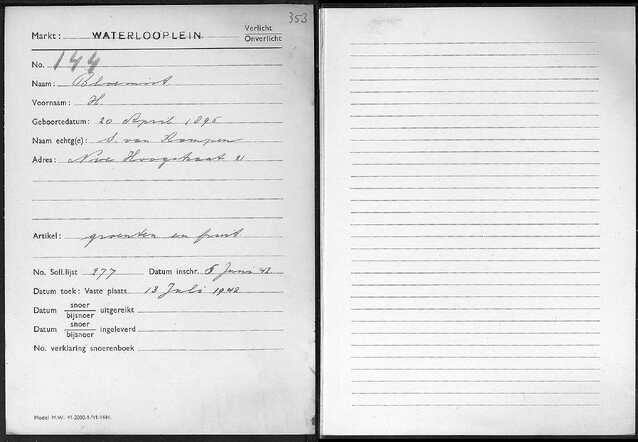 353
Markt: WATERLOOPLEIN Verlicht
Onverlicht
No. 144
Naam: Bloemist
Voornaam: H.
Geboortedatum: 20 April 1895
Naam echtg(e): S. van Kampen
Adres: Nwe Hoogstraat 21
Artikel: groenten en fruit
No. Soll.lijst 277 Datum inschr. 8 Juni 42
Datum toek: Vaste plaats 13 Juli 1942
Datum snoer
bijsnoer uitgereikt
Datum snoer
bijsnoer ingeleverd
No. verklaring snoerenboek
Model M.W.